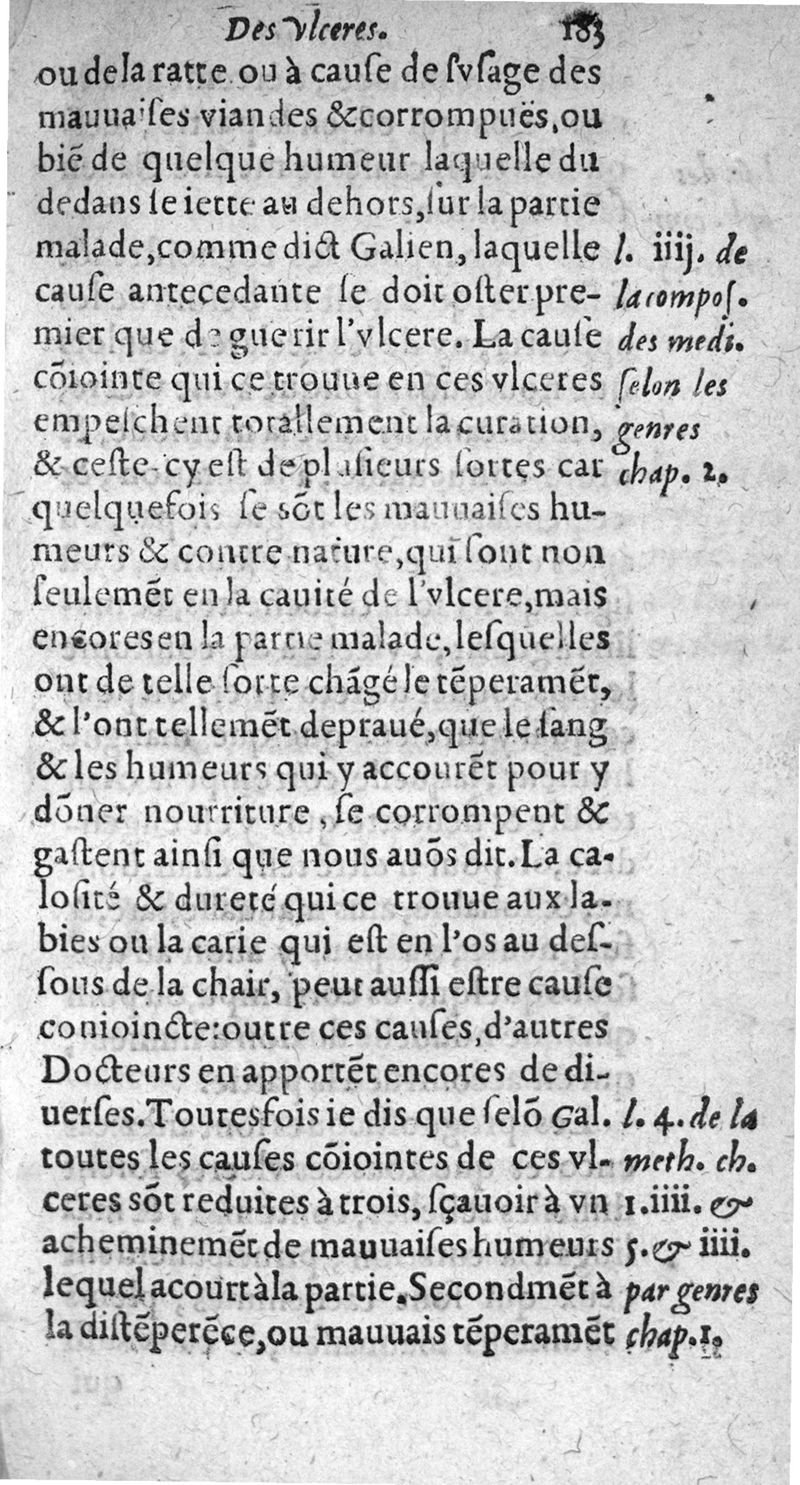 Des vlceres. 183
ou de la ratte ou à cauſe de ſvſage des
mauuaiſes viandes & corrompuës, ou
biē de quelque humeur laquelle du
dedans ſe iette au dehors, ſur la partie
malade, comme dict Galien, laquelle
cauſe antecedante ſe doit oſter pre-
mier que de guerir l'vlcere. La cauſe
cōiointe qui ce trouue en ces vlceres
empeſchent totallement la curation,
& ceſte-cy eſt de pluſieurs ſortes car
quelquefois ſe sōt les mauuaiſes hu-
meurs & contre nature, qui ſont non
ſeulemēt en la cauité de l'vlcere, mais
encores en la partie malade, leſquelles
ont de telle ſorte chāgé le tēperamēt,
& l'ont tellemēt depraué, que le ſang
& les humeurs qui y accourēt pour y
dōner nourriture, ſe corrompent &
gaſtent ainſi que nous auōs dit. La ca-
loſité & dureté qui ce trouue aux la-
bies ou la carie qui eſt en l'os au deſ-
ſous de la chair, peut auſſi eſtre cauſe
conioincte: outre ces cauſes, d'autres
Docteurs en apportēt encores de di-
uerſes. Toutesfois ie dis que ſelō Gal.
toutes les cauſes cōiointes de ces vl-
ceres sōt reduites à trois, ſçauoir à vn
acheminemēt de mauuaiſes humeurs
lequel acourt à la partie. Secondmēt à
la diſtēperēce, ou mauuais tēperamēt
l. iiij. de
la compoſ.
des medi.
ſelon les
genres
chap. 2.
l. 4. de la
meth. ch.
1. iiii. &
5. & iiii.
par genres
chap. 1.